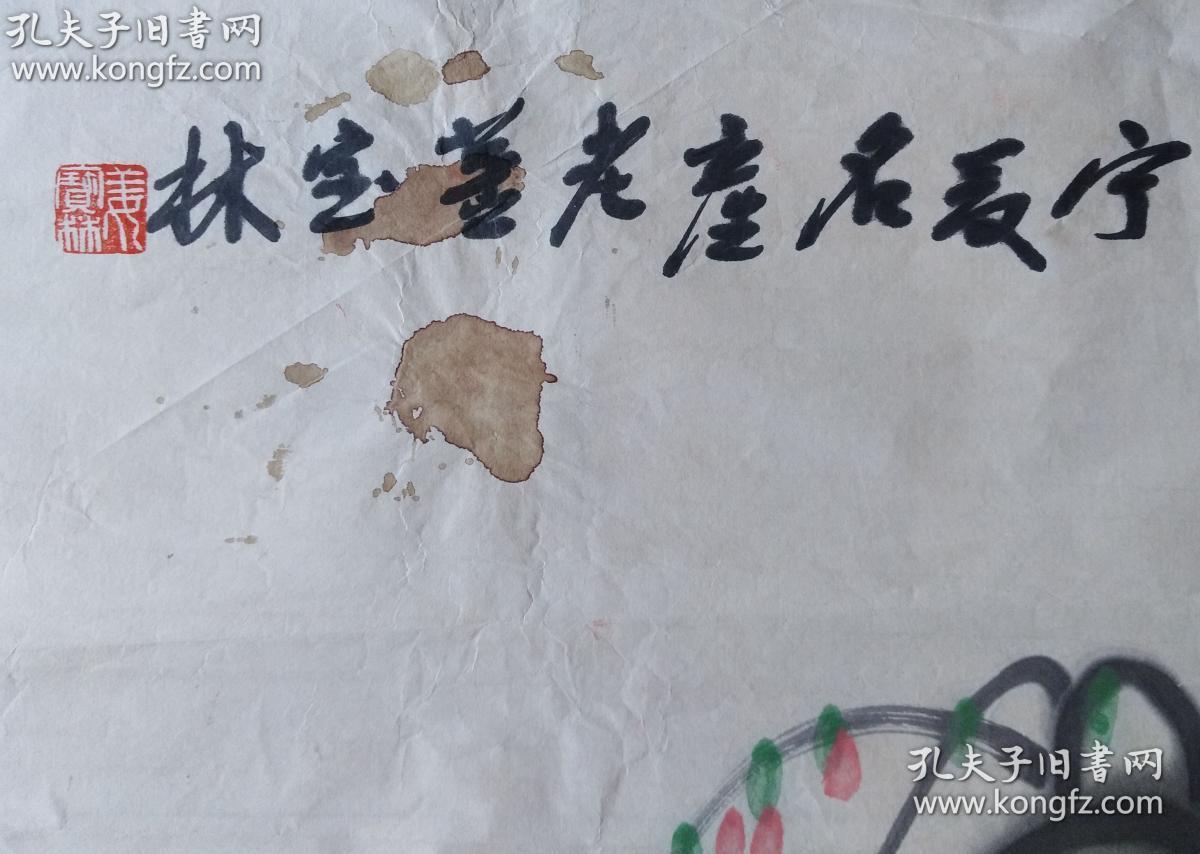 孔夫子旧書网
www.kongfz.com
宁夏名產老姜宝林
姜寶林
孔夫子旧書网
www.kongfz.com